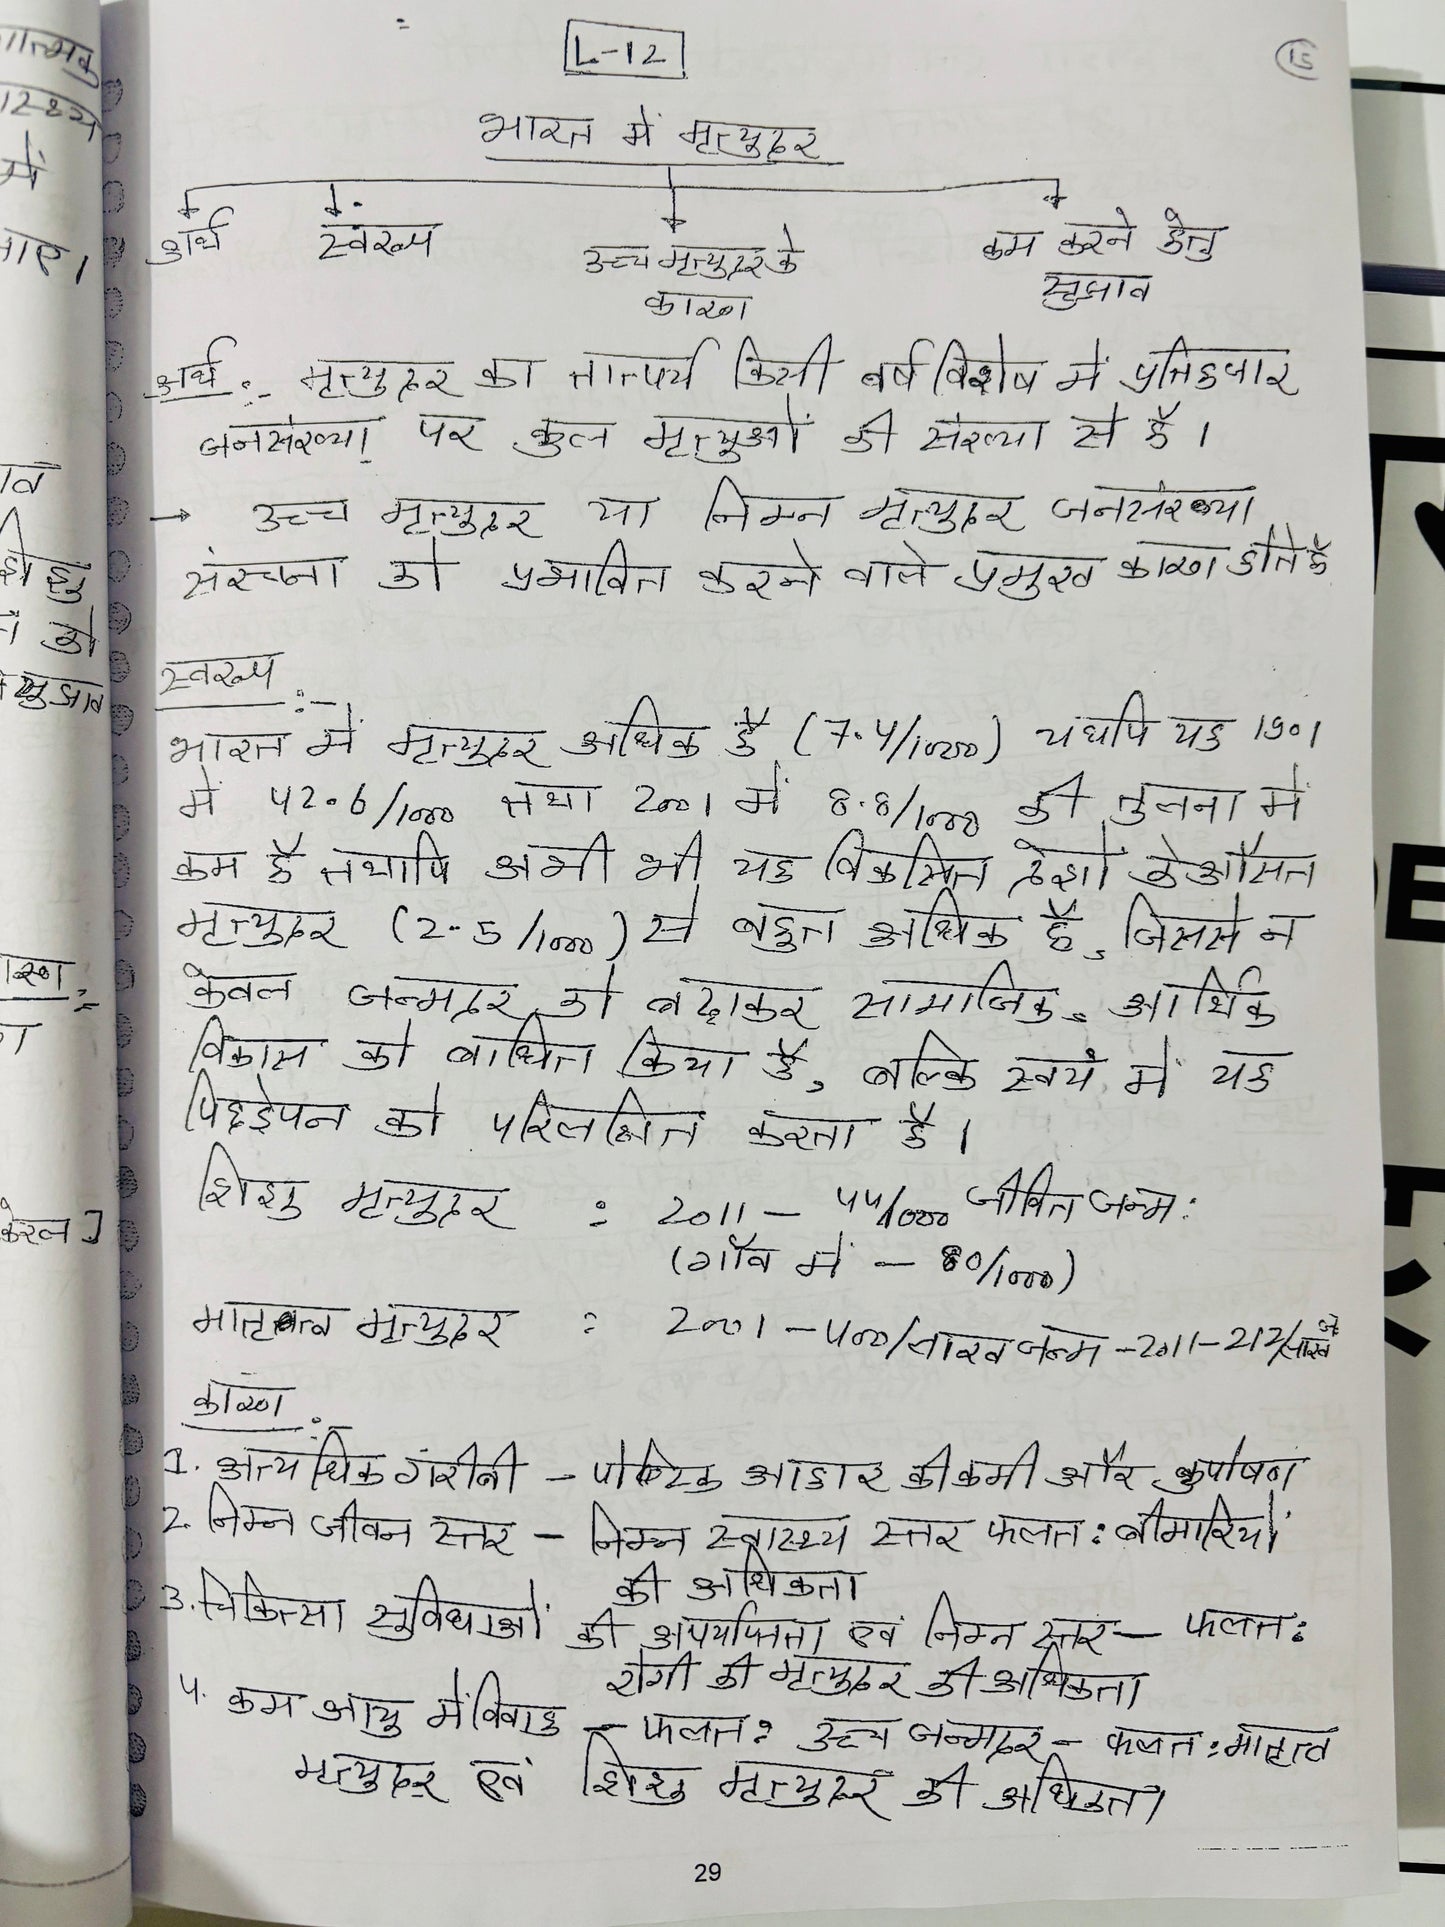 L-12
15
भारत में मृत्युदर
अर्थ
स्वरूप
उच्च मृत्युदर के
कारण
कम करने हेतु
सुझाव
अर्थ :- मृत्युदर का तात्पर्य किसी वर्ष विशेष में प्रतिहजार
जनसंख्या पर कुल मृत्युओं की संख्या से है।
→ उच्च मृत्युदर या निम्न मृत्युदर जनसंख्या
संरचना को प्रभावित करने वाले प्रमुख कारण होते है
स्वरूप :-
भारत में मृत्युदर अधिक है (7.4/1000) यद्यपि यह 1901
में 42.6/1000 तथा 2001 में 8.8/1000 की तुलना में
कम है तथापि अभी भी यह विकसित देशों के औसत
मृत्युदर (2.5/1000) से बहुत अधिक है, जिससे न
केवल जन्मदर को बढ़ाकर सामाजिक, आर्थिक
विकास को बाधित किया है, बल्कि स्वयं में यह
पिछड़ेपन को परिलक्षित करता है।
शिशु मृत्युदर : 2011 – 44/1000 जीवित जन्म:
(गाँव में – 80/1000)
मातृत्व मृत्युदर : 2001 – 400/लाख जन्म – 2011 – 212/लाख
कारण :-
1. अत्यधिक गरीबी – पौष्टिक आहार की कमी और कुपोषण
2. निम्न जीवन स्तर – निम्न स्वास्थ्य स्तर फलत: बीमारियों
की अधिकता
3. चिकित्सा सुविधाओं की अपर्याप्तता एवं निम्न स्तर – फलत:
रोगी की मृत्युदर की अधिकता
4. कम आयु में विवाह – फलत: उच्च जन्मदर – फलत: मातृत्व
मृत्युदर एवं शिशु मृत्युदर की अधिकता
29
में
शिशु
को
सुझाव
केरल]